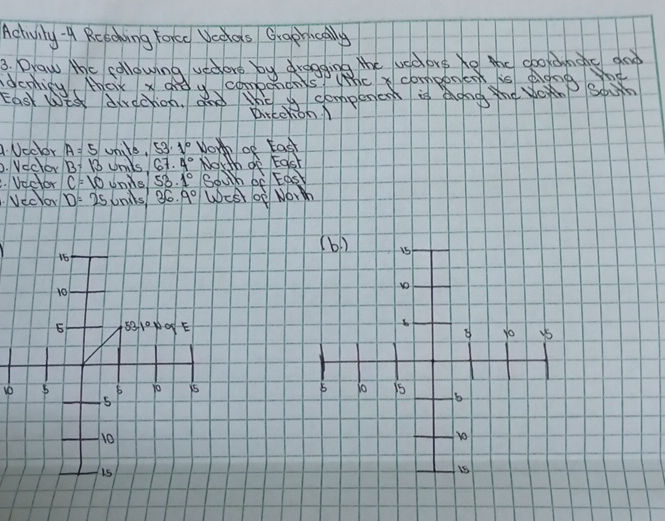 Activity-4 Resolving Force Vectors Graphically
3. Draw the following vectors by dragging the vectors to the coordinate and
identify their x and y components. (The x component is along the
East West direction, and the y component is along the North South
Direction)
a. Vector A = 5 units, 53.1° North of East
b. Vector B = 13 units, 67.4° North of East
c. Vector C = 10 units, 53.1° South of East
Vector D = 25 units, 36.9° West of North
(b.)
15
10
5 53.1° N of E
10 5 5 10 15
5
10
15
15
10
5
5 10 15
5 10 15
5
10
15